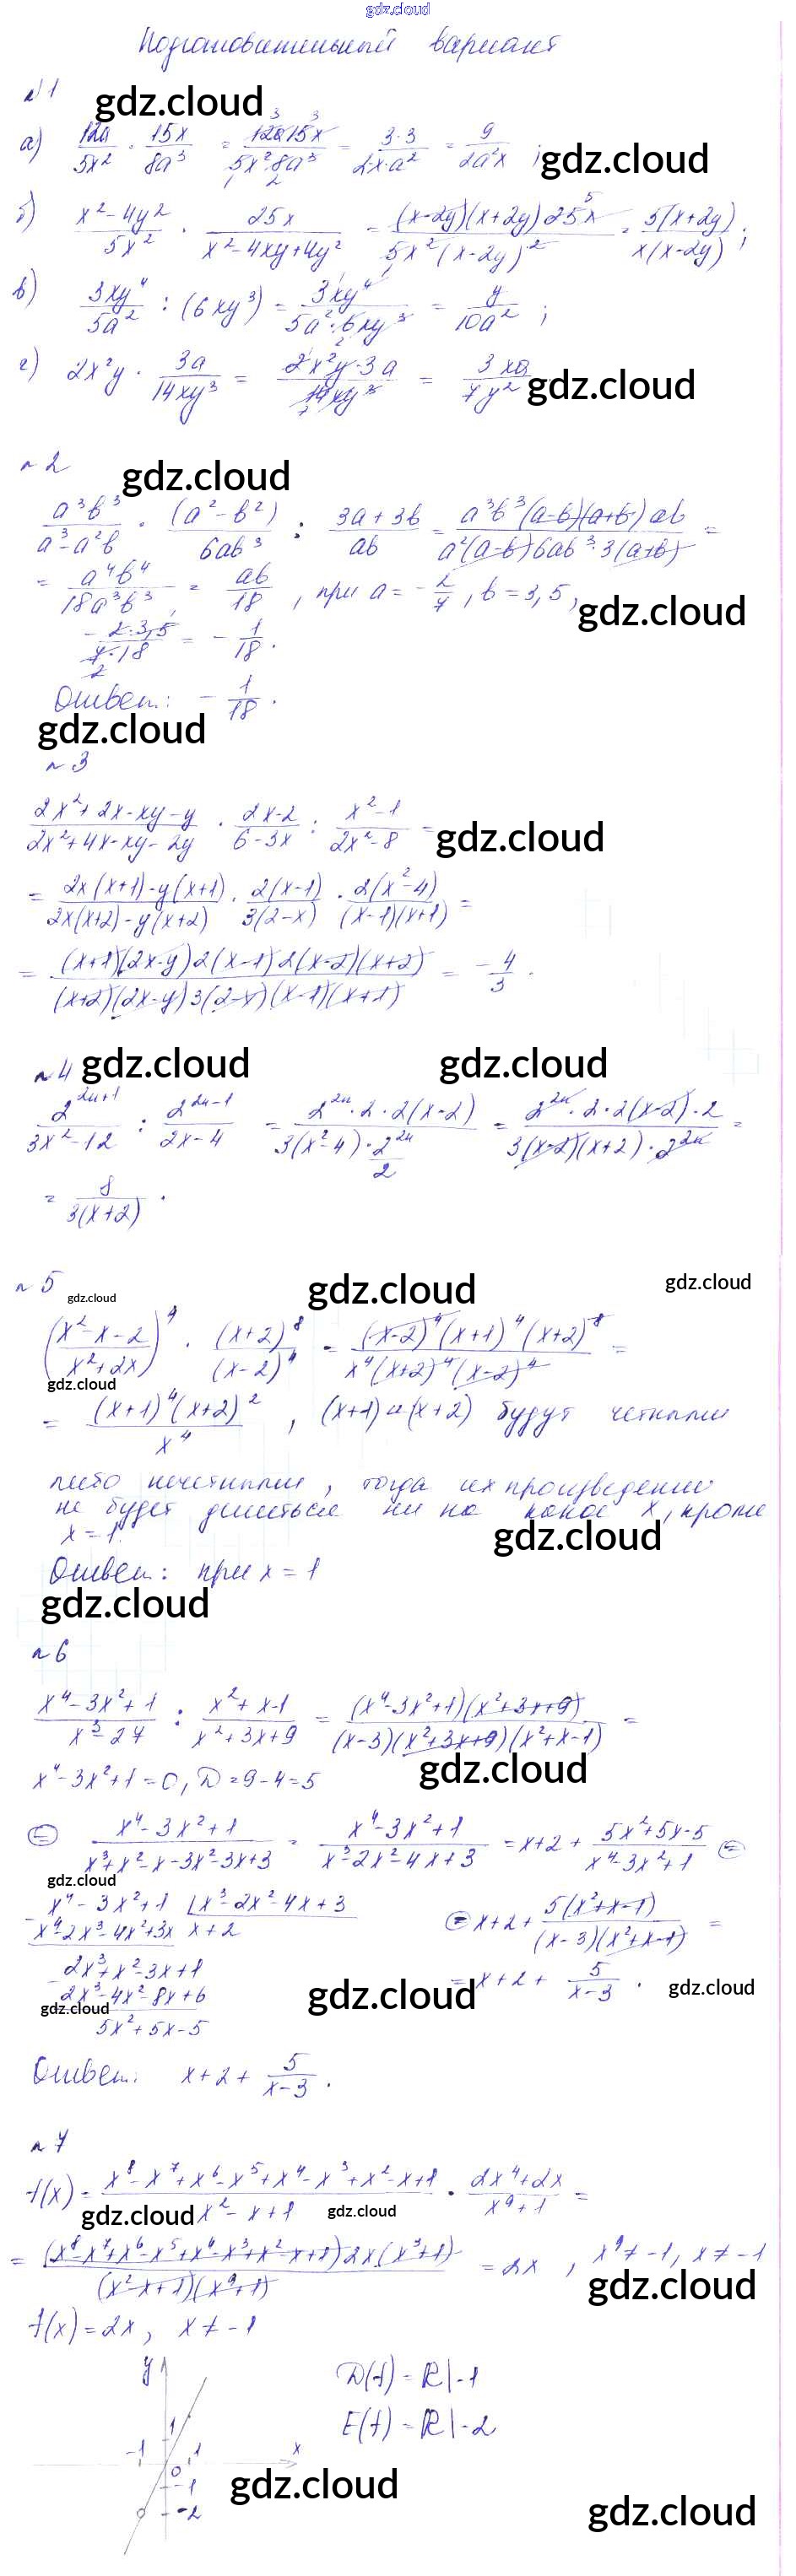 gdz.cloud
Подготовительный вариант
№1 gdz.cloud
а) 12a/5x² · 15x/8a³ = 12a15x/5x²·8a³ = 3·3/2x·a² = 9/2a²x ; gdz.cloud
б) x²-4y²/5x² · 25x/x²-4xy+4y² = (x-2y)(x+2y)25x/5x²(x-2y)² = 5(x+2y)/x(x-2y) ;
в) 3xy⁴/5a² : (6xy³) = 3xy⁴/5a²·6xy³ = y/10a² ;
г) 2x²y · 3a/14xy³ = 2x²y·3a/14xy³ = 3xa/7y² gdz.cloud
№2 gdz.cloud
a³b³/a³-a²b · (a²-b²)/6ab³ : 3a+3b/ab = a³b³(a-b)(a+b)ab/a²(a-b)6ab³·3(a+b) =
= a⁴b⁴/18a³b³ = ab/18 , при a = -2/7 , b = 3,5, gdz.cloud
-2·3,5/7·18 = -1/18 .
Ответ: -1/18 .
gdz.cloud
№3
2x²+2x-xy-y/2x²+4x-xy-2y · 2x-2/6-3x : x²-1/2x²-8 = gdz.cloud
= 2x(x+1)-y(x+1)/2x(x+2)-y(x+2) · 2(x-1)/3(2-x) · 2(x²-4)/(x-1)(x+1) =
= (x+1)(2x-y)2(x-1)2(x-2)(x+2)/(x+2)(2x-y)3(2-x)(x-1)(x+1) = -4/3 .
№4 gdz.cloud gdz.cloud
2²ⁿ⁺¹/3x²-12 : 2²ⁿ⁻¹/2x-4 = 2²ⁿ·2·2(x-2)/3(x²-4)·2²ⁿ/2 = 2²ⁿ·2·2(x-2)·2/3(x-2)(x+2)·2²ⁿ =
= 8/3(x+2) .
№5 gdz.cloud gdz.cloud gdz.cloud
(x²-x-2/x²+2x)⁴ · (x+2)⁸/(x-2)⁴ = (x-2)⁴(x+1)⁴(x+2)⁸/x⁴(x+2)⁴(x-2)⁴ =
gdz.cloud
= (x+1)⁴(x+2)²/x⁴ , (x+1) и (x+2) будут четными
либо нечетными, тогда их произведение
не будет делиться ни на какое x, кроме
x = 1. gdz.cloud
Ответ: при x = 1
gdz.cloud
№6
x⁴-3x²+1/x³-27 : x²+x-1/x²+3x+9 = (x⁴-3x²+1)(x²+3x+9)/(x-3)(x²+3x+9)(x²+x-1) =
x⁴-3x²+1=0, D=9-4=5 gdz.cloud
= x⁴-3x²+1/x³+x²-x-3x²-3x+3 = x⁴-3x²+1/x³-2x²-4x+3 = x+2+ 5x²+5x-5/x⁴-3x²+1 =
gdz.cloud
x⁴-3x²+1 | x³-2x²-4x+3
x⁴-2x³-4x²+3x x+2 = x+2+ 5(x²+x-1)/(x-3)(x²+x-1) =
2x³+x²-3x+1
2x³-4x²-8x+6 gdz.cloud = x+2+ 5/x-3 . gdz.cloud
gdz.cloud
5x²+5x-5
Ответ: x+2+ 5/x-3 .
№7
f(x)= x⁸-x⁷+x⁶-x⁵+x⁴-x³+x²-x+1/x²-x+1 · 2x⁴+2x/x⁹+1 =
gdz.cloud gdz.cloud
= (x⁸-x⁷+x⁶-x⁵+x⁴-x³+x²-x+1)2x(x³+1)/(x²-x+1)(x⁹+1) = 2x , x⁹≠-1, x≠-1
gdz.cloud
f(x)=2x, x≠-1
y D(f)=R|-1
1 E(f)=R|-2
-1 1 x
0
-1 gdz.cloud
-2 gdz.cloud